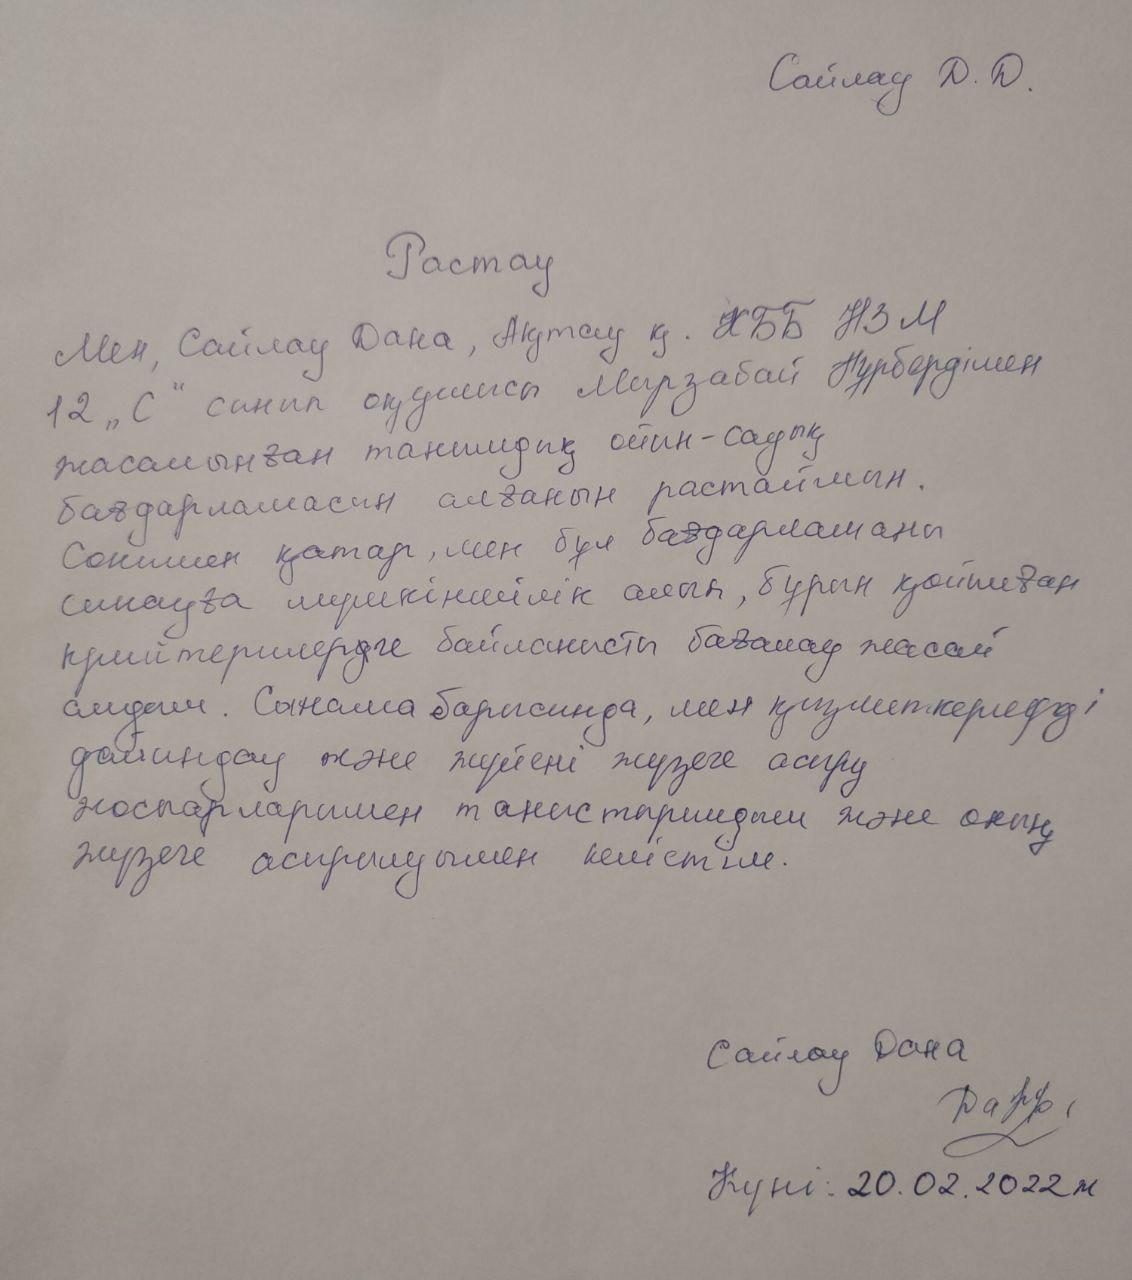 Сайлау Д. Д.
Растау
Мен, Сайлау Дана, Ақтау қ. ХББ НЗМ
12 „С" сынып оқушысы Мырзабай Нұрбердімен
жасалынған танымдық ойын-сауық
бағдарламасын алғанын растаймын.
Сонымен қатар, мен бұл бағдарламаны
сынауға мүмкіншілік алып, бұрын қойылған
критерилерге байланысты бағалау жасай
алдым. Сынама барысында, мен қызметкерлерді
дайындау және жүйені жүзеге асыру
жоспарларымен таныстырылдым және оның
жүзеге асырылуымен келістім.
Сайлау Дана
Күні: 20.02.2022ж